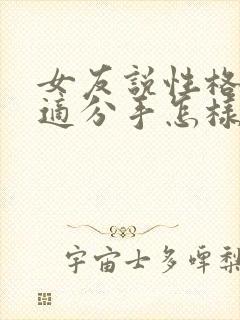 女友説性格
適分手怎樣
宇宙士多啤梨